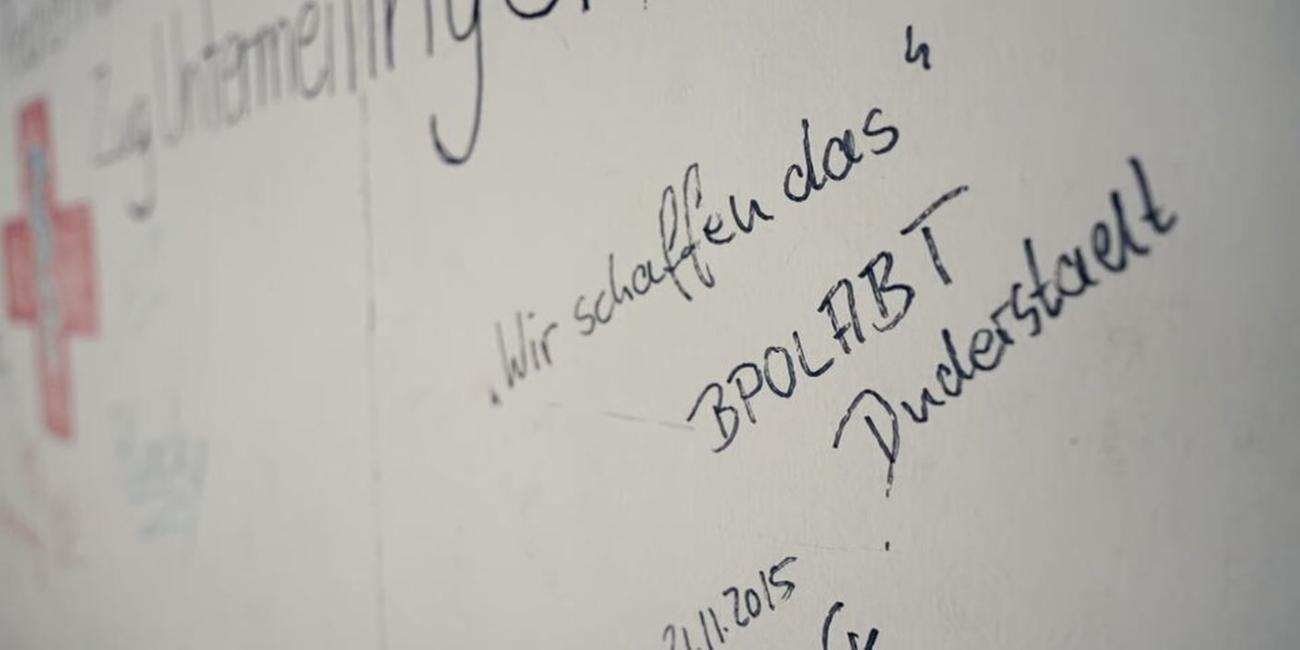 Zug Untermeitingen
„Wir schaffen das“
BPOLABT
Duderstadt
21.11.2015